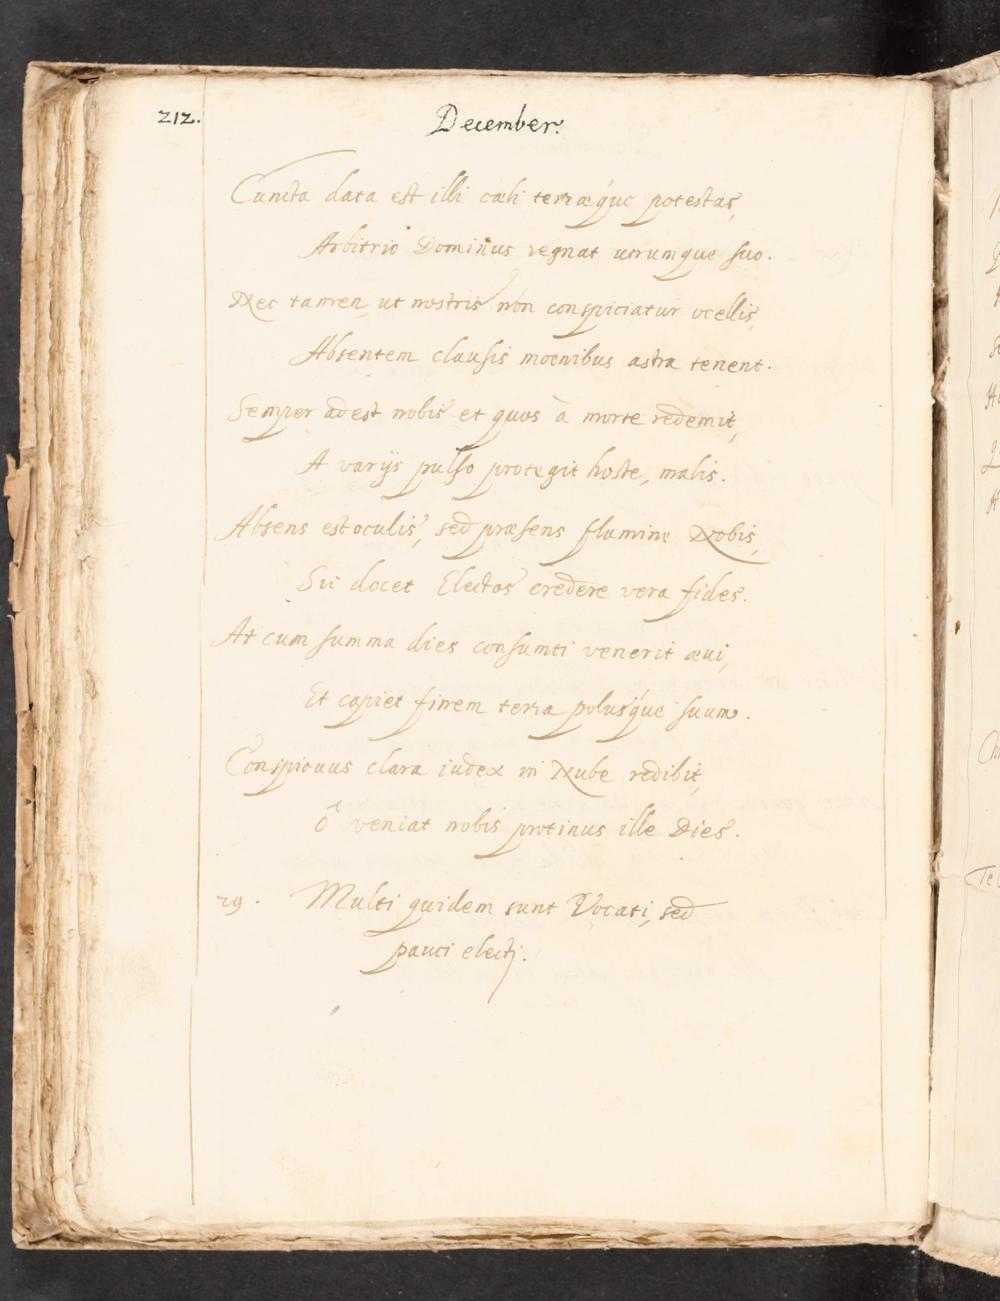 212.
December.
Cuncta data est illi cæli terræque potestas,
Arbitrio Dominus regnat utrumque suo.
Nec tamen, ut nostris non conspiciatur ocellis,
Absentem clausis moenibus astra tenent.
Semper adest nobis et quos à morte redemit,
A varijs pulso protegit hoste, malis.
Absens est oculis, sed præsens flamine Nobis,
Sic docet Electos credere vera fides.
At cum summa dies consumti venerit æui,
Et capiet finem terra polusque suum.
Conspicuus clara iudex in Nube redibit,
ô veniat nobis protinus ille Dies.
29. Multi quidem sunt Vocati, sed
pauci electj.